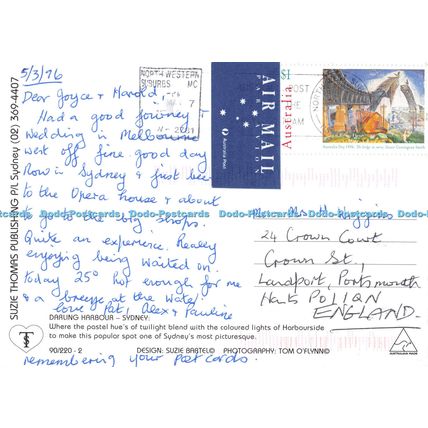 5/3/96
Dear Joyce & Harold,
Had a good journey &
wedding in Melbourne
went off fine good day
Now in Sydney & just been
to the Opera house & about
to the big shops.
Quite an experience. Really
enjoying being waited on.
today 25° hot enough for me
& a breeze at the water
love Pat, Alex & Pauline
remembering your postcards.
SUZIE THOMAS PUBLISHING P/L Sydney (02) 369-4407
NORTH WESTERN
SUBURBS MC
7
AIR MAIL
PAR AVION
Australia Post
$1
Australia
POST
THE
AM
H. Higgins
24 Crown Court
Crown St,
Landport, Portsmouth
Hants PO1 1QN
ENGLAND.
Dodo-Postcards Dodo-Postcards Dodo-Postcards Dodo-Postcards Dodo-Postcards Dodo-Postcards
DARLING HARBOUR – SYDNEY:
Where the pastel hue's of twilight blend with the coloured lights of Harbourside
to make this popular spot one of Sydney's most picturesque.
90/220 - 2 DESIGN: SUZIE BARTELO © PHOTOGRAPHY: TOM O'FLYNN©
AUSTRALIAN MADE